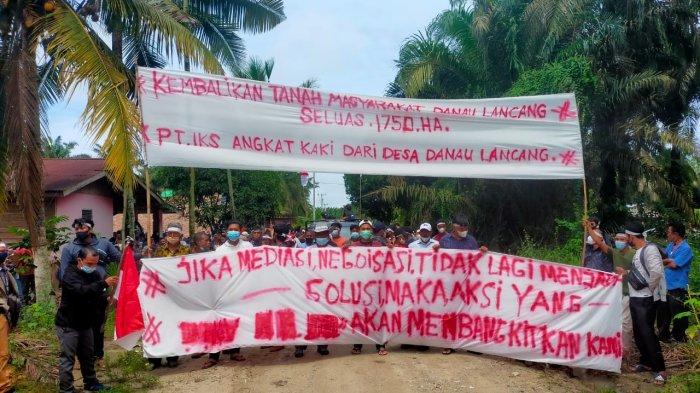 # KEMBALIKAN TANAH MASYARAKAT DANAU LANCANG #
SELUAS.1750.HA.
# PT.IKS ANGKAT KAKI DARI DESA DANAU LANCANG.#
# JIKA MEDIASI,NEGOISASI,TIDAK LAGI MENJADI
SOLUSI,MAKA,AKSI YANG
# AKAN MEMBANGKITKAN KAMI